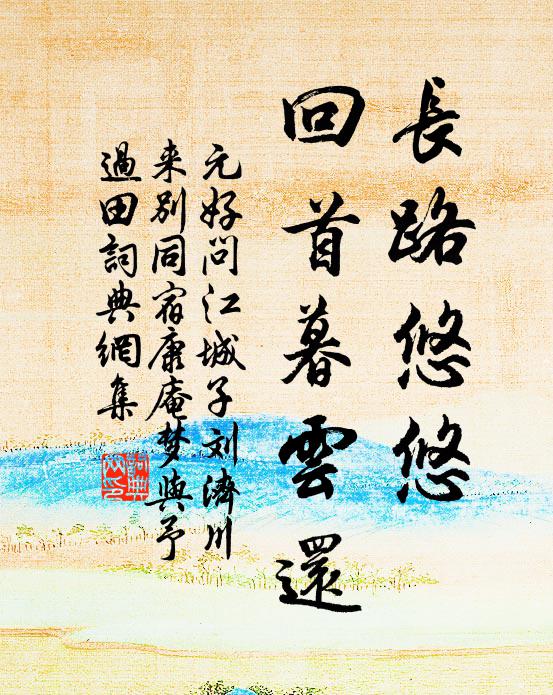 長路悠悠
回首暮雲還
元好问江城子刘濟川
来别同宿康庵梦與予
過田詞典網集
詞典